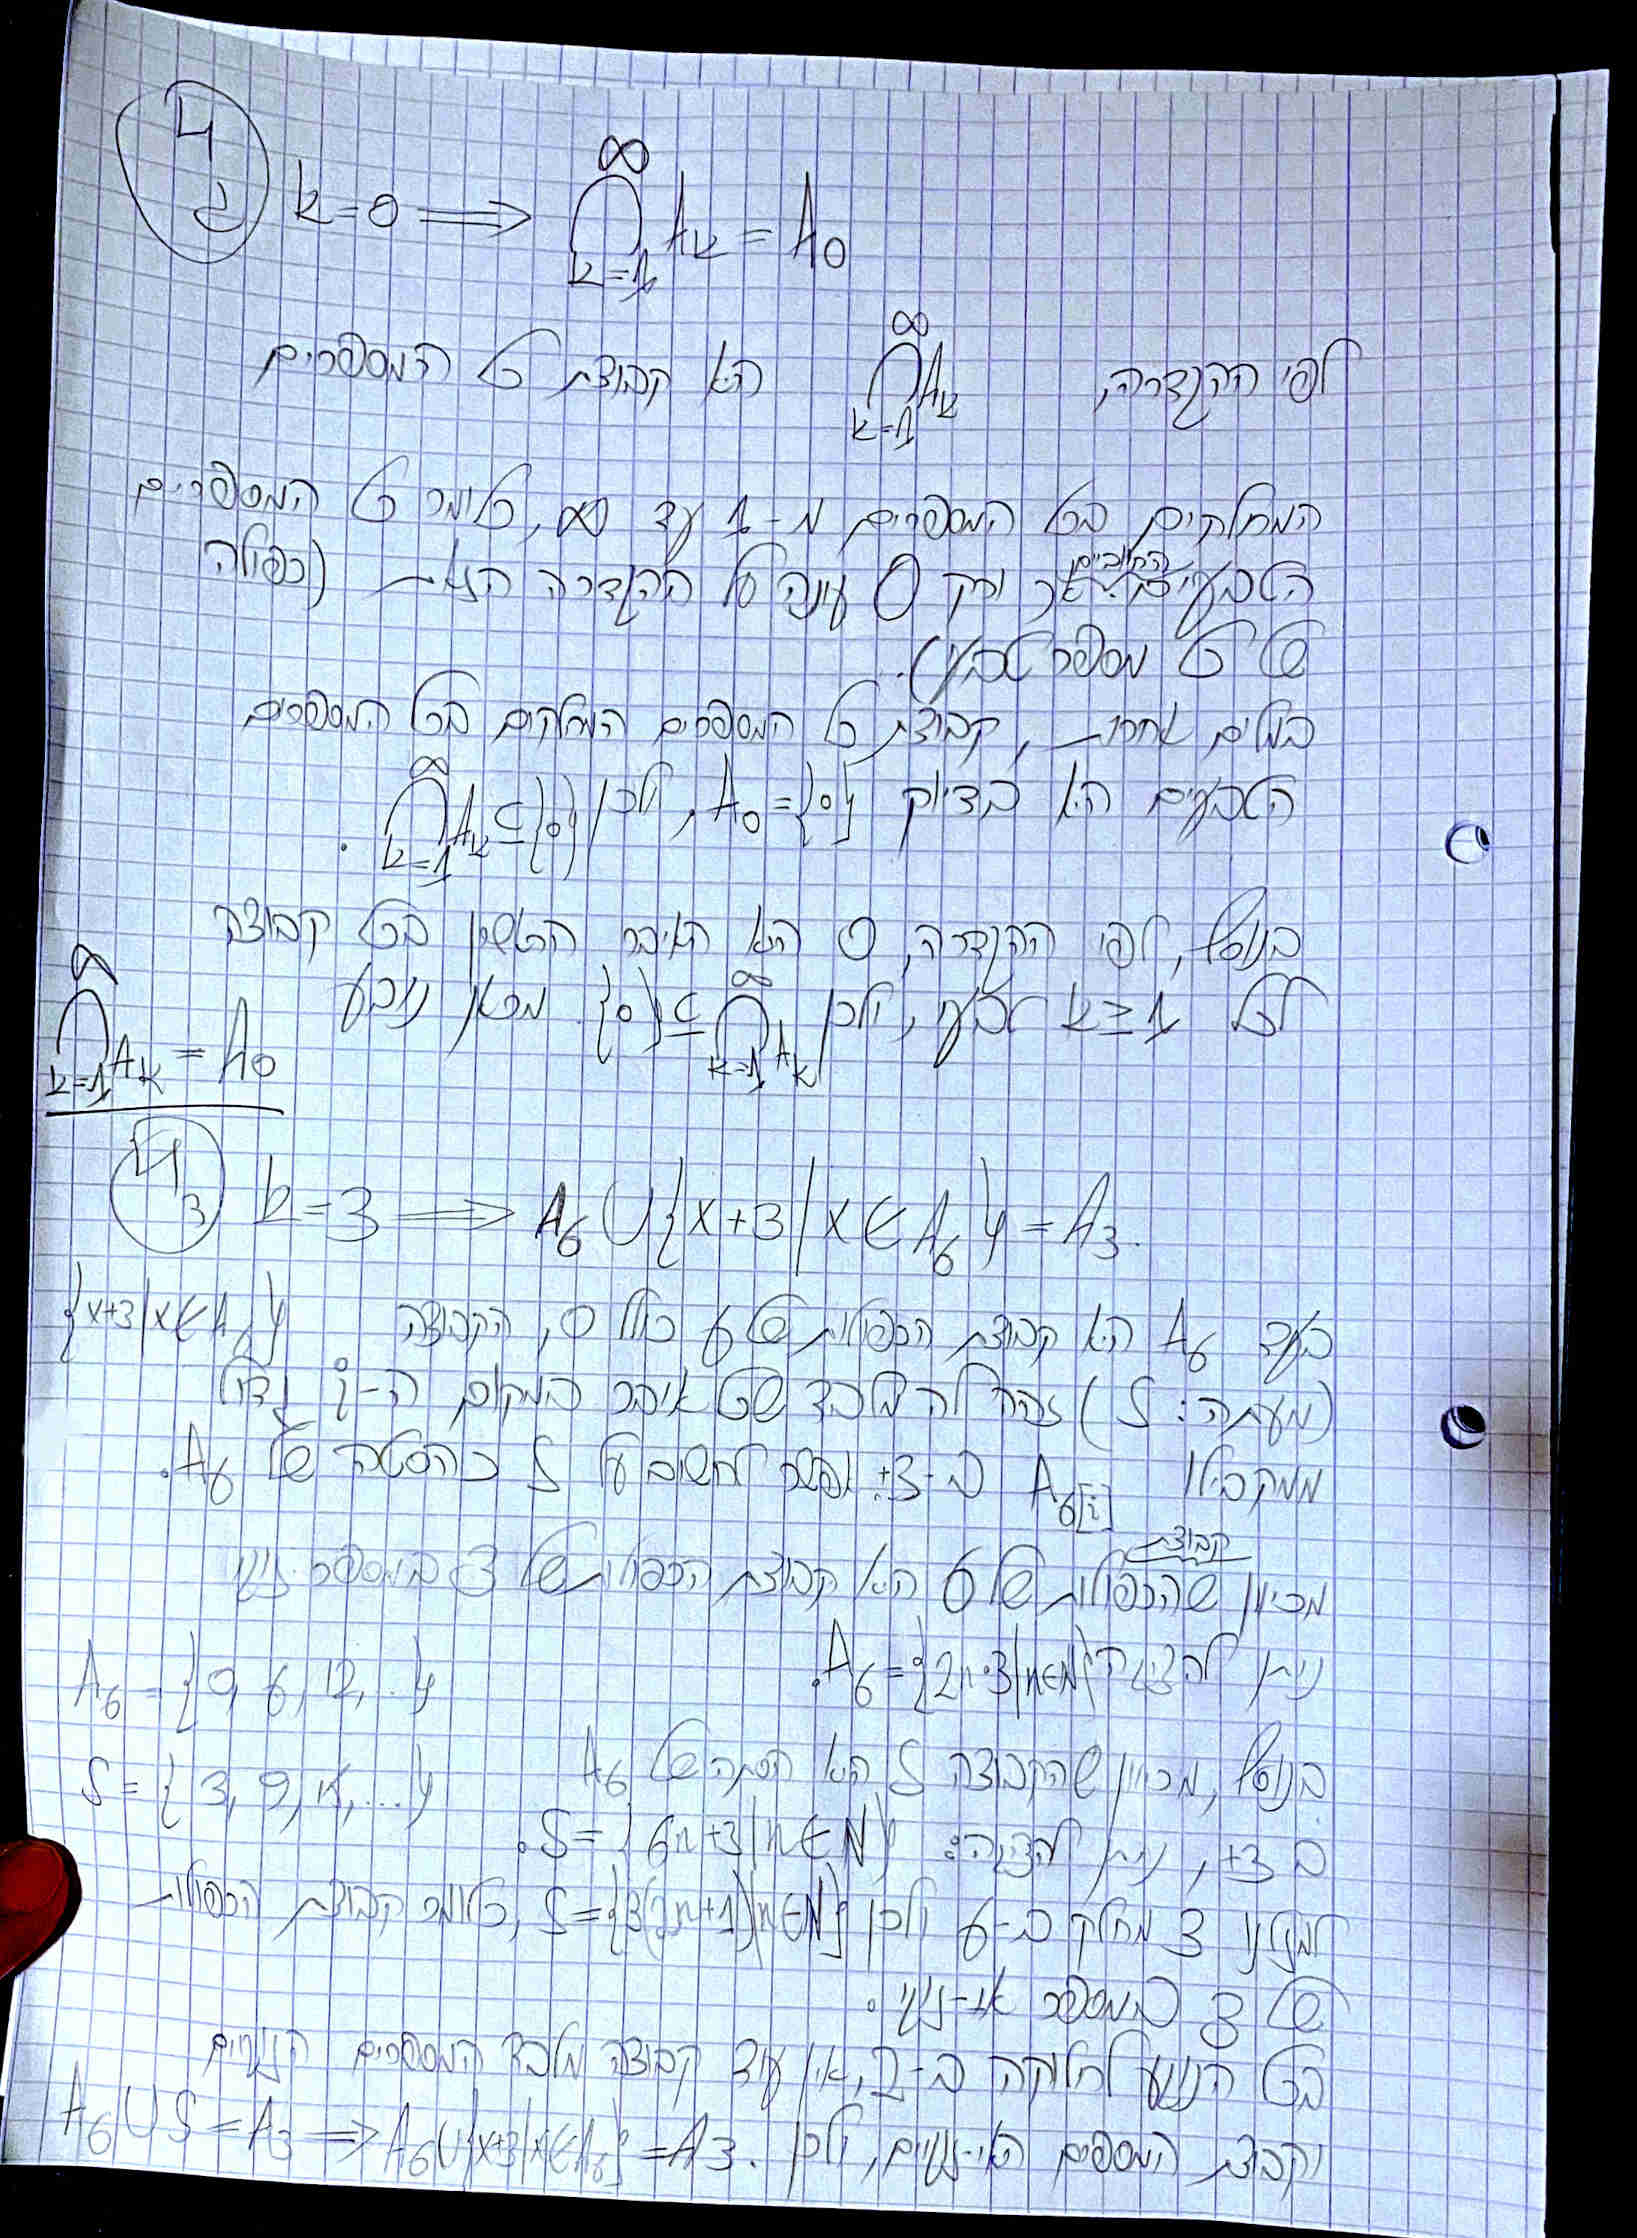 4
2
k=0 ⟹ ⋂_{k=1}^{∞} A_k = A_0
לפי ההגדרה, ⋂_{k=1}^{∞} A_k היא קבוצת כל המספרים
המחלקים בכל המספרים מ-1 עד ∞, כלומר כל המספרים
הטבעיים החיוביים. אך ורק 0 עונה על ההגדרה הזאת (כפולה
של כל מספר טבעי).
במלים אחרות, קבוצת כל המספרים המחלקים בכל המספרים
הטבעים היא בדיוק A_0={0}, ולכן ⋂_{k=1}^{∞} A_k ⊆ {0}.
בנוסף, לפי ההגדרה, 0 הוא האיבר הראשון בכל קבוצה
לכל k≥1 טבעי, ולכן {0} ⊆ ⋂_{k=1}^{∞} A_k. מכאן נובע
⋂_{k=1}^{∞} A_k = A_0
4
3
k=3 ⟹ A_6 ∪ {x+3 | x∈A_6} = A_3.
בעוד A_6 היא קבוצת הכפולות של 6 כולל 0, הקבוצה {x+3|x∈A_6}
(מעתה: S) זהה לה מלבד שכל איבר במקום ה-i גדול
ממקבילו A_6[i] ב-3+. אפשר לחשוב על S כהסטה של A_6.
מכיוון שקבוצת הכפולות של 6 היא קבוצת הכפולות של 3 במספר זוגי
ניתן להציגה A_6={2n·3|n∈N}. A_6={0,6,12,...}
בנוסף, מכיוון שהקבוצה S היא הסתה של A_6 S={3,9,15,...}
ב 3+, ניתן להציגה: S={6n+3|n∈N}.
3 מחלק ב-6 ולכן S={3(2n+1)|n∈N}, כלומר קבוצת הכפולות
של 3 במספר אי-זוגי.
בכל הנוגע לחלוקה ב-2, אין עוד קבוצה מלבד המספרים הזוגיים
וקבוצת המספרים האי-זוגיים, ולכן A_6∪S=A_3 ⟹ A_6∪{x+3|x∈A_6}=A_3.